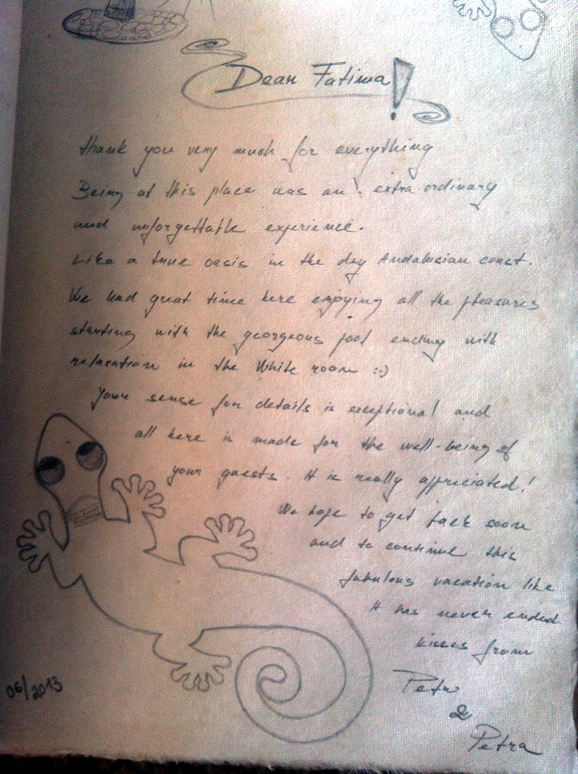 Dear Fatima!
thank you very much for everything
Being at this place was an extra ordinary
and unforgettable experience.
Like a true oasis in the dry Andalusian coast.
We had great time here enjoying all the pleasures
starting with the georgeous pool ending with
relaxation in the White room :-)
Your sense for details is exceptional and
all here is made for the well-being of
your guests. It is really appreciated!
We hope to get back soon
and to continue this
fabulous vacation like
it has never ended
kisses from
Petr
&
Petra
06/2013